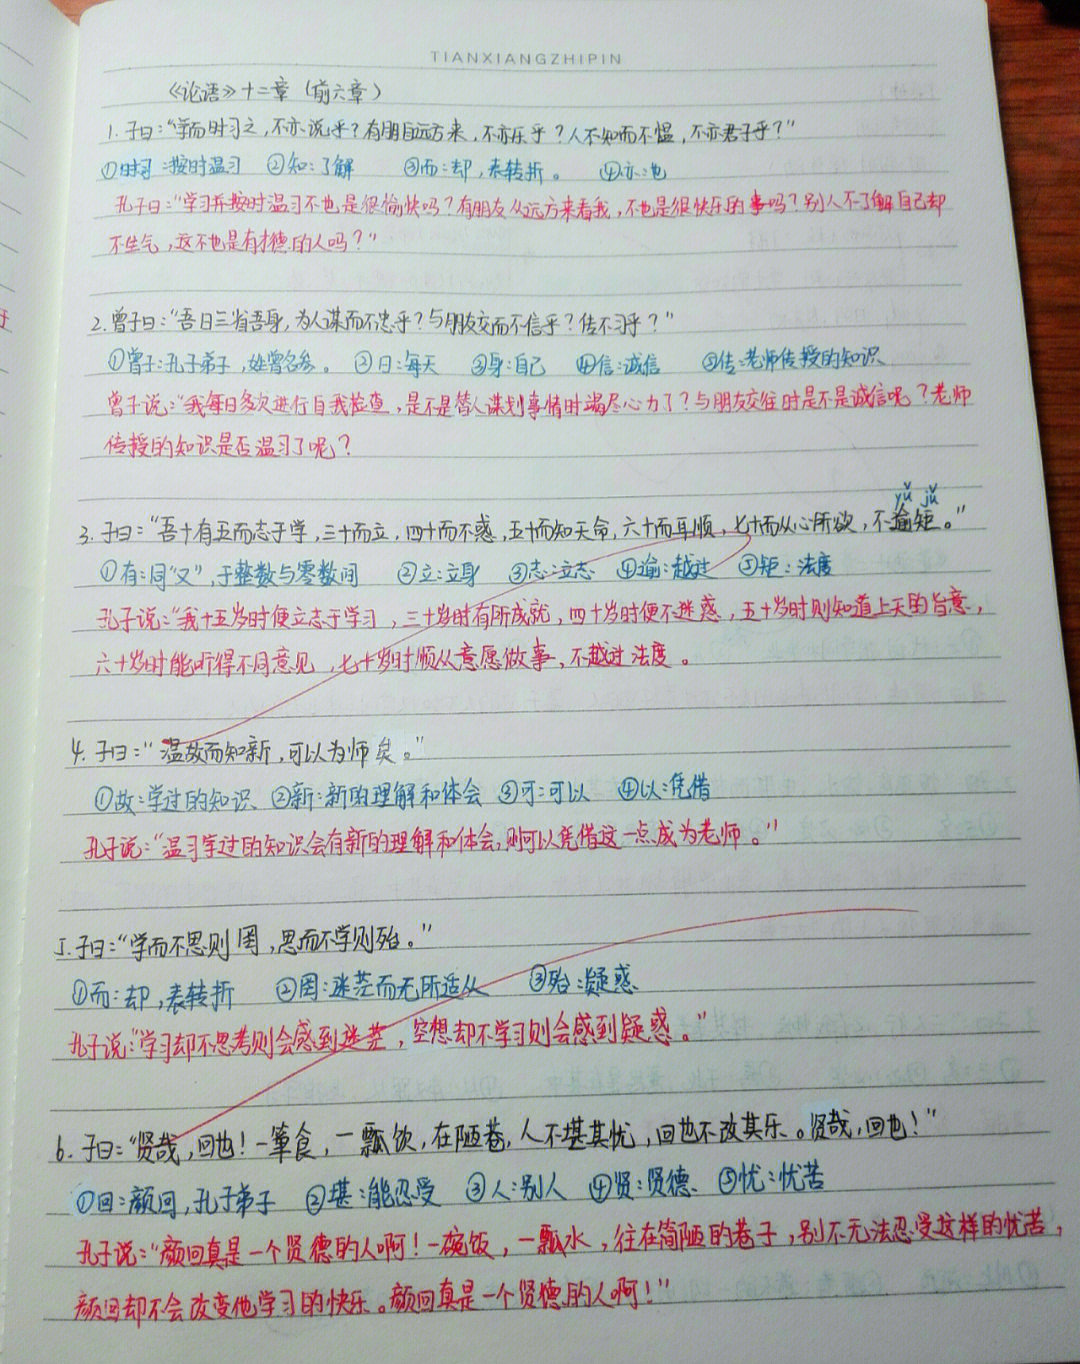 TIANXIANGZHIPIN
《论语》十二章（前六章）
1. 子曰："学而时习之，不亦说乎？有朋自远方来，不亦乐乎？人不知而不愠，不亦君子乎？"
①时习：按时温习 ②知：了解 ③而：却，表转折。 ④亦：也
孔子曰："学习并按时温习不也是很愉快吗？有朋友从远方来看我，不也是很快乐的事吗？别人不了解自己却
不生气，这不也是有才德的人吗？"
2. 曾子曰："吾日三省吾身，为人谋而不忠乎？与朋友交而不信乎？传不习乎？"
①曾子：孔子弟子，姓曾名参。 ②日：每天 ③身：自己 ④信：诚信 ⑤传：老师传授的知识
曾子说："我每日多次进行自我检查，是不是替人谋划事情时竭尽心力了？与朋友交往时是不是诚信呢？老师
传授的知识是否温习了呢？
yǔ jǔ
3. 子曰："吾十有五而志于学，三十而立，四十而不惑，五十而知天命，六十而耳顺，七十而从心所欲，不逾矩。"
①有：同"又"，于整数与零数间 ②立：立身 ③志：立志 ④逾：越过 ⑤矩：法度
孔子说："我十五岁时便立志于学习，三十岁时有所成就，四十岁时便不迷惑，五十岁时则知道上天的旨意，
六十岁时能听得不同意见，七十岁时顺从意愿做事，不越过法度。
4. 子曰："温故而知新，可以为师矣。"
①故：学过的知识 ②新：新的理解和体会 ③可：可以 ④以：凭借
孔子说："温习学过的知识会有新的理解和体会，则可以凭借这一点成为老师。"
5. 子曰："学而不思则罔，思而不学则殆。"
①而：却，表转折 ②罔：迷茫而无所适从 ③殆：疑惑
孔子说："学习却不思考则会感到迷茫，空想却不学习则会感到疑惑。"
6. 子曰："贤哉，回也！一箪食，一瓢饮，在陋巷，人不堪其忧，回也不改其乐。贤哉，回也！"
①回：颜回，孔子弟子 ②堪：能忍受 ③人：别人 ④贤：贤德 ⑤忧：忧苦
孔子说："颜回真是一个贤德的人啊！一碗饭，一瓢水，住在简陋的巷子，别不无法忍受这样的忧苦，
颜回却不会改变他学习的快乐。颜回真是一个贤德的人啊！"